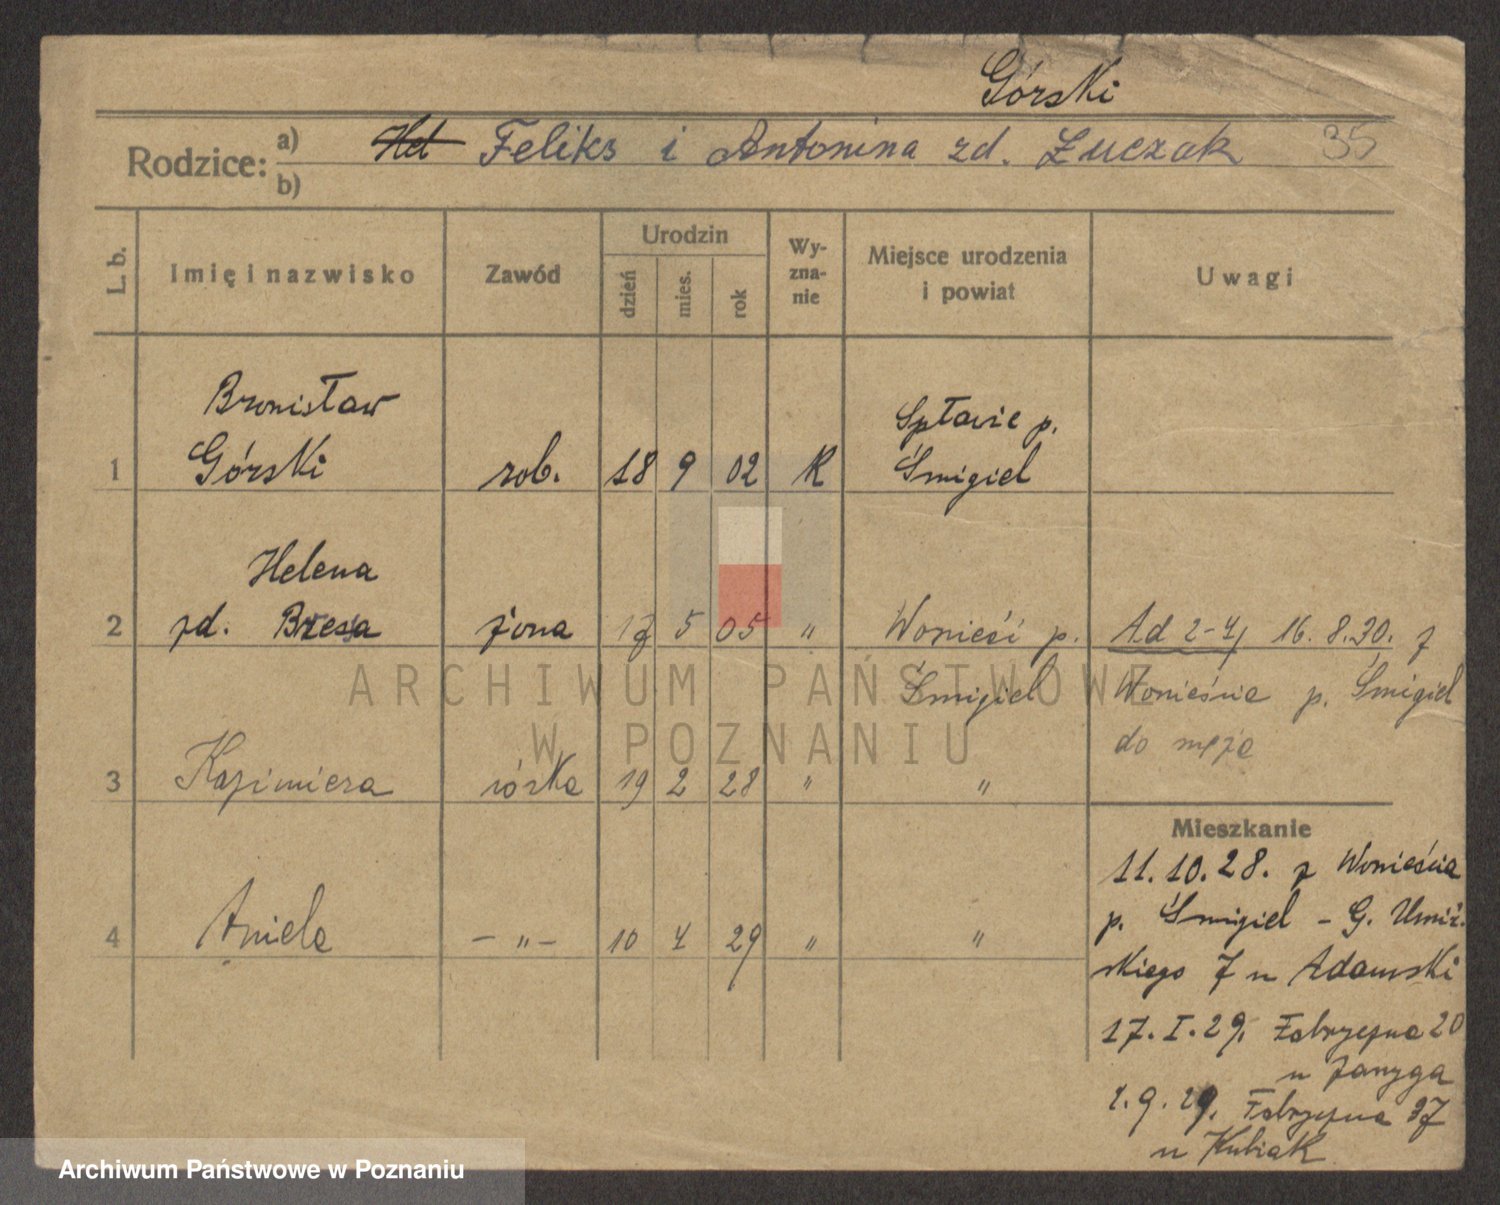 Górski
Rodzice: a) Feliks i Antonina zd. Łuczak 35
b)
L. b. Imię i nazwisko Zawód Urodzin dzień mies. rok Wyzna-nie Miejsce urodzenia i powiat Uwagi
Bronisław
1 Górski rob. 18 9 02 R Spławie p. Śmigiel
Helena
2 zd. Brzesa żona 5 05 " Wonieść p. Śmigiel
Ad 2-4, 16. 8. 30. z
Wonieścia p. Śmigiel
do męża
3 Kazimiera córka 19 2 28 " "
4 Aniela – " – 10 4 29 " "
Mieszkanie
11. 10. 28. z Wonieścia
p. Śmigiel – G. Umiń-
skiego 7 u Adamski
17. I. 29. Fabryczna 20
u
9. 29. Fabryczna 37
u Kubiak
ARCHIWUM PAŃSTWOWE
W POZNANIU
Archiwum Państwowe w Poznaniu